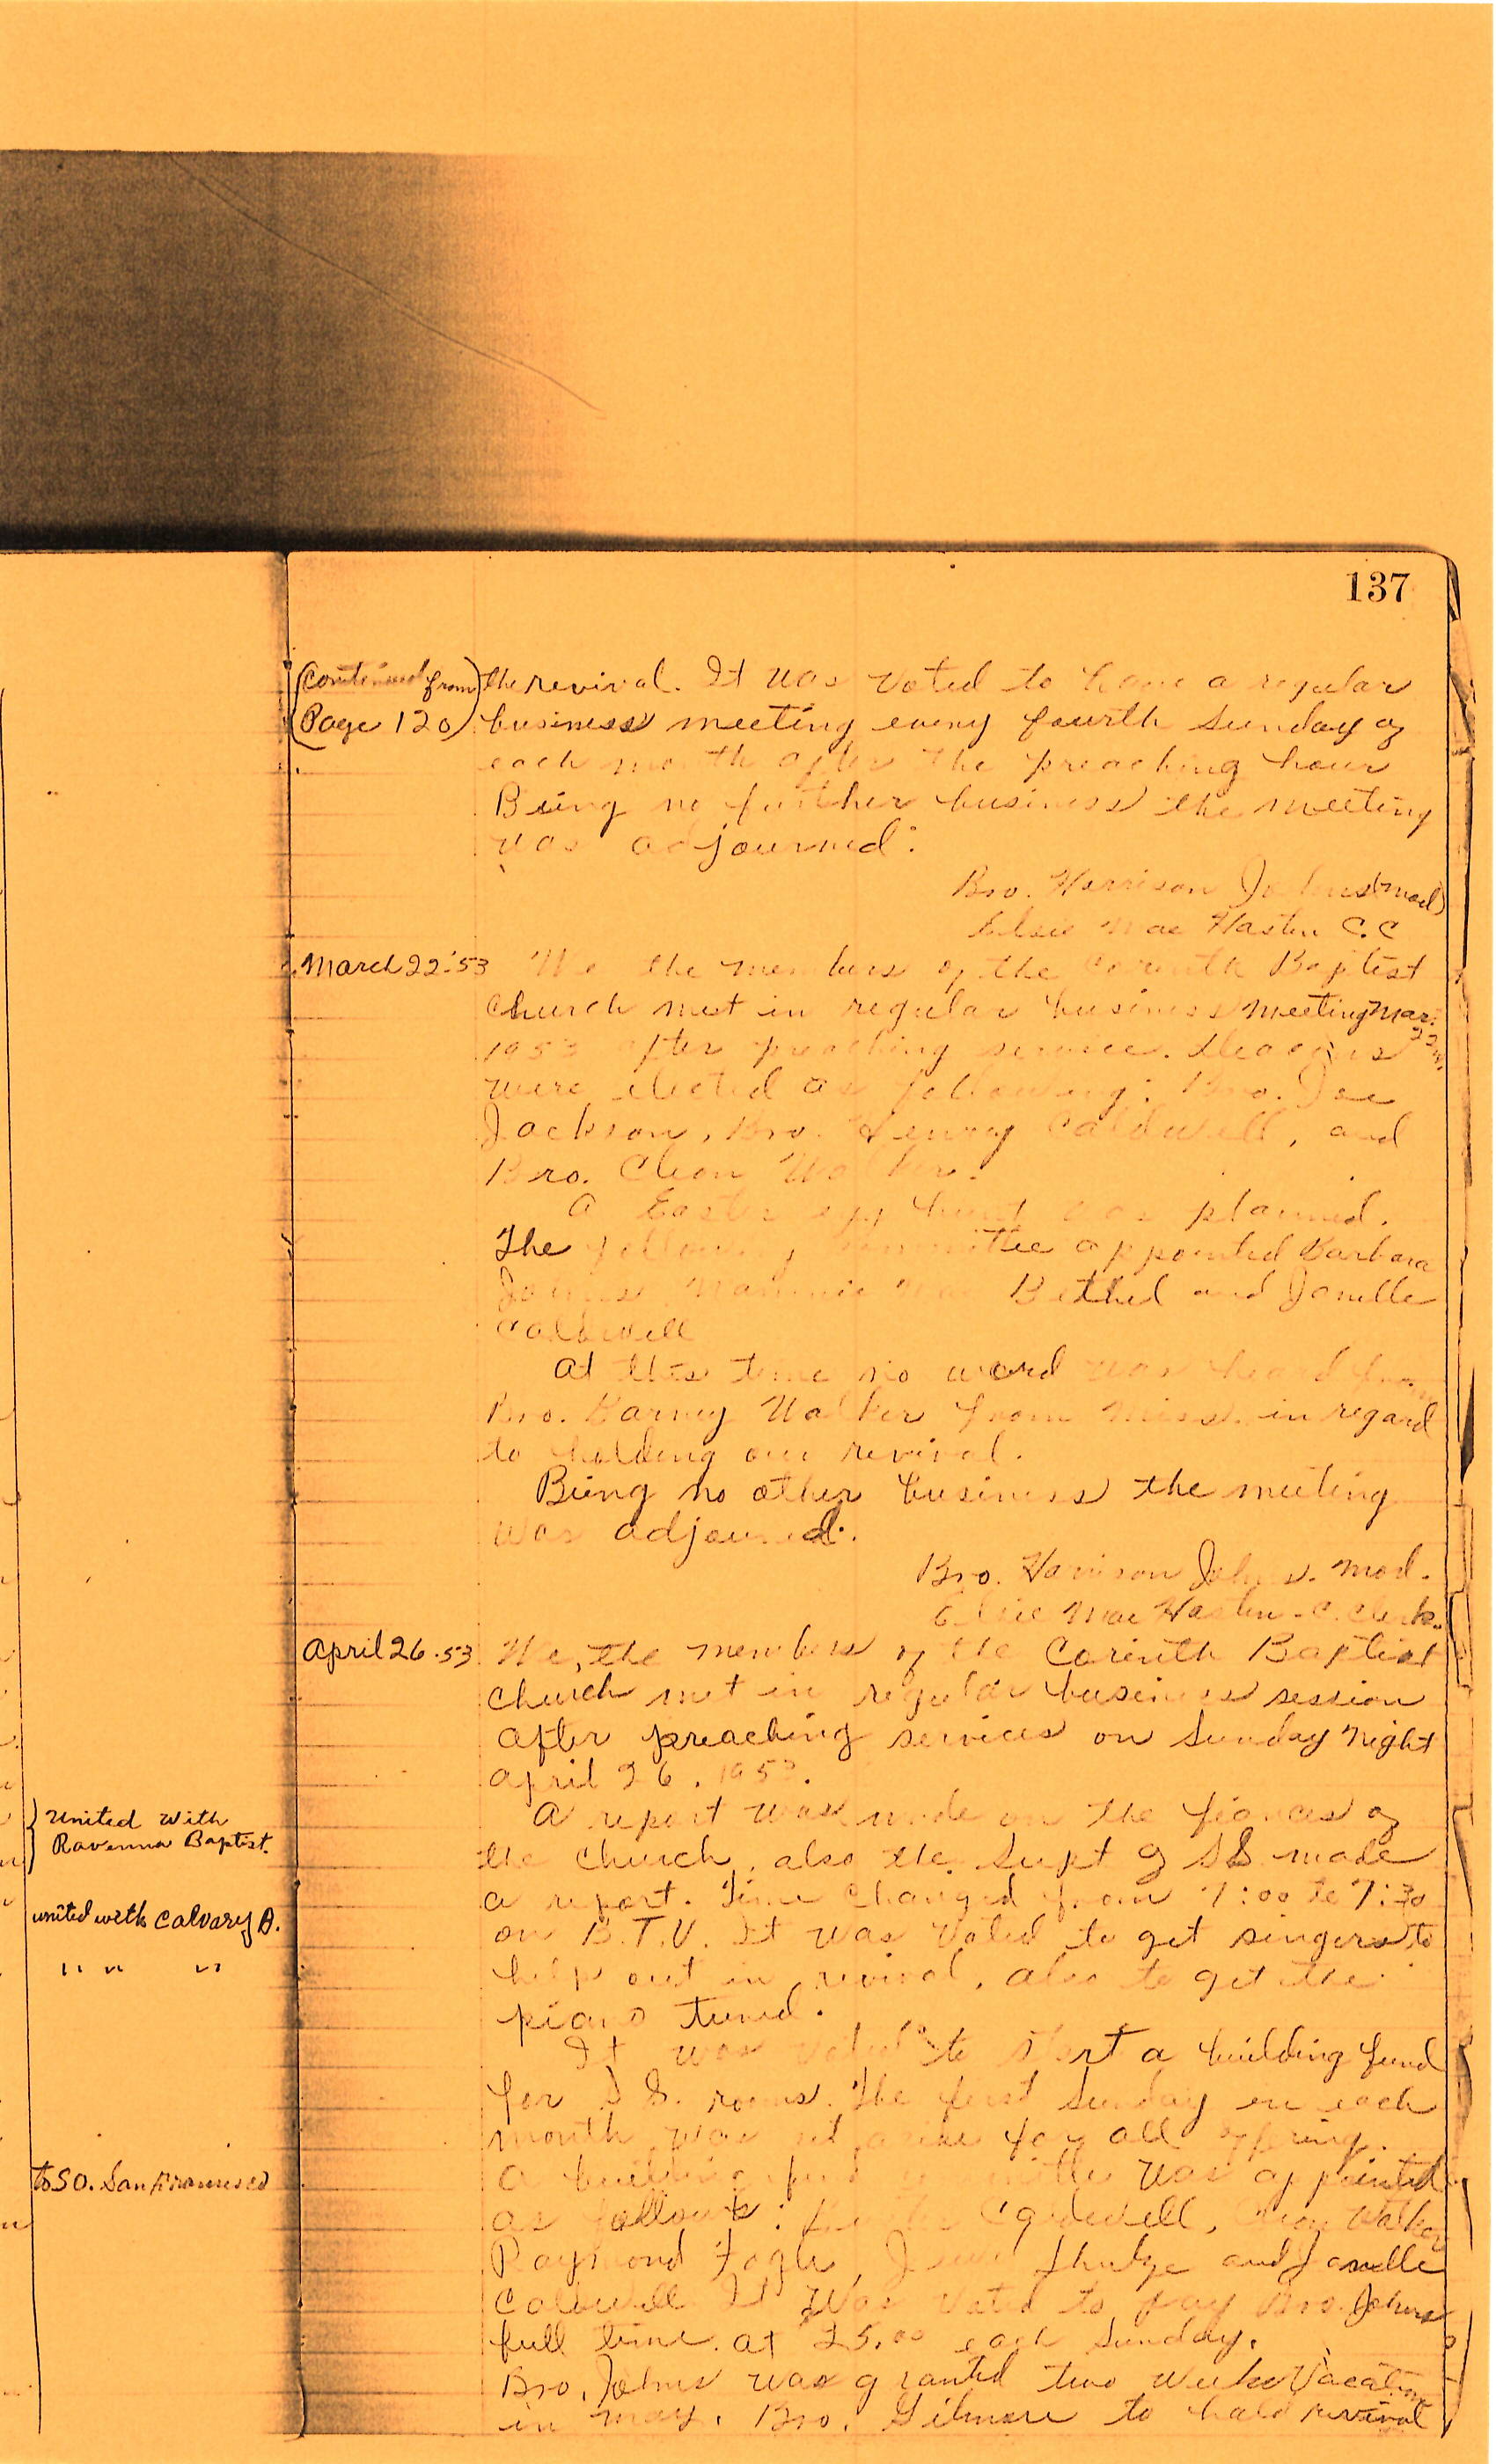 137
(Continued from the revival. It was voted to have a regular
(Page 120) business meeting every fourth Sunday of
each month after the preaching hour
Being no further business the meeting
was adjourned.
Bro. Harrison Johns (mod)
Elsie Mae Hasten C.C
March 22-'53 We the members of the Corinth Baptist
Church met in regular business meeting Mar. 22nd
1953 after preaching service. Deacons
were elected as following: Bro. Joe
Jackson, Bro. Henry Caldwell, and
Bro. Cleon Walker.
A Easter egg hunt was planned.
The following committee appointed Barbara
Mammie Mae Bethel and Janelle
Caldwell
At this time no word was heard from
Bro. Barney Walker from Miss. in regard
to holding our revival.
Being no other business the meeting
was adjourned.
Bro. Harrison Johns. Mod.
Elsie Mae Hasten - C. Clerk.
April 26-53 We, the members of the Corinth Baptist
Church met in regular business session
after preaching services on Sunday night
April 26, 1953.
A report was made on the fiances of
the church, also the Supt of S.S. made
a report. Time changed from 7:00 to 7:30
on B.T.U. It was voted to get singers to
help out in revival, also to get the
piano tuned.
It was voted to start a building fund
for S.S. rooms. The first Sunday in each
month was set aside for all offering.
A building fund committee was appointed
as follows: Caldwell, Cleon Walker
Raymond Fogle, and Janelle
Caldwell It was voted to pay Bro. Johns
full time at 25.00 each Sunday.
Bro. Johns was granted two weeks vacation
in May. Bro. Gilmore to hold revival
United with
Ravenna Baptist.
united with Calvary B.
" " "
to So. San Francisco